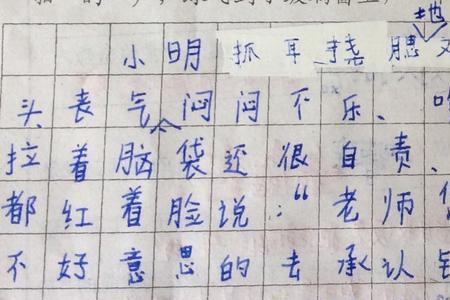 地
小明抓耳挠腮
头丧气闷闷不乐、
拉着脑袋还很自责、
都红着脸说:“老师
不好意思的去承认